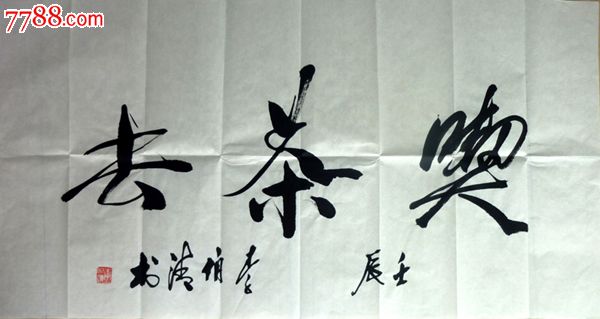 7788.com
喫茶去
壬辰
李伯清书